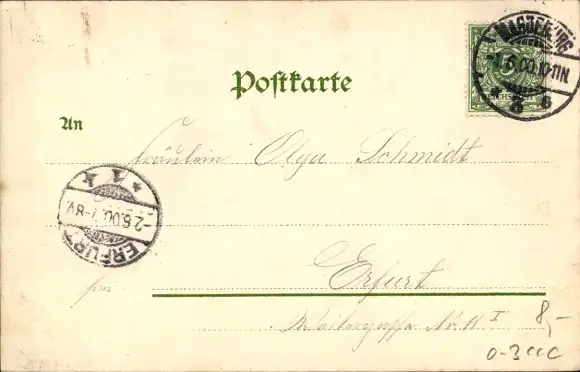 Postkarte
MAGDEBURG
-1.6.00.10-11N.
* 3 8
REICHSPOST
An
Fräulein Olga Schmidt
* 1 *
-2.6.00.7-8V.
ERFURT
Erfurt
Nr. 11 I
8,-